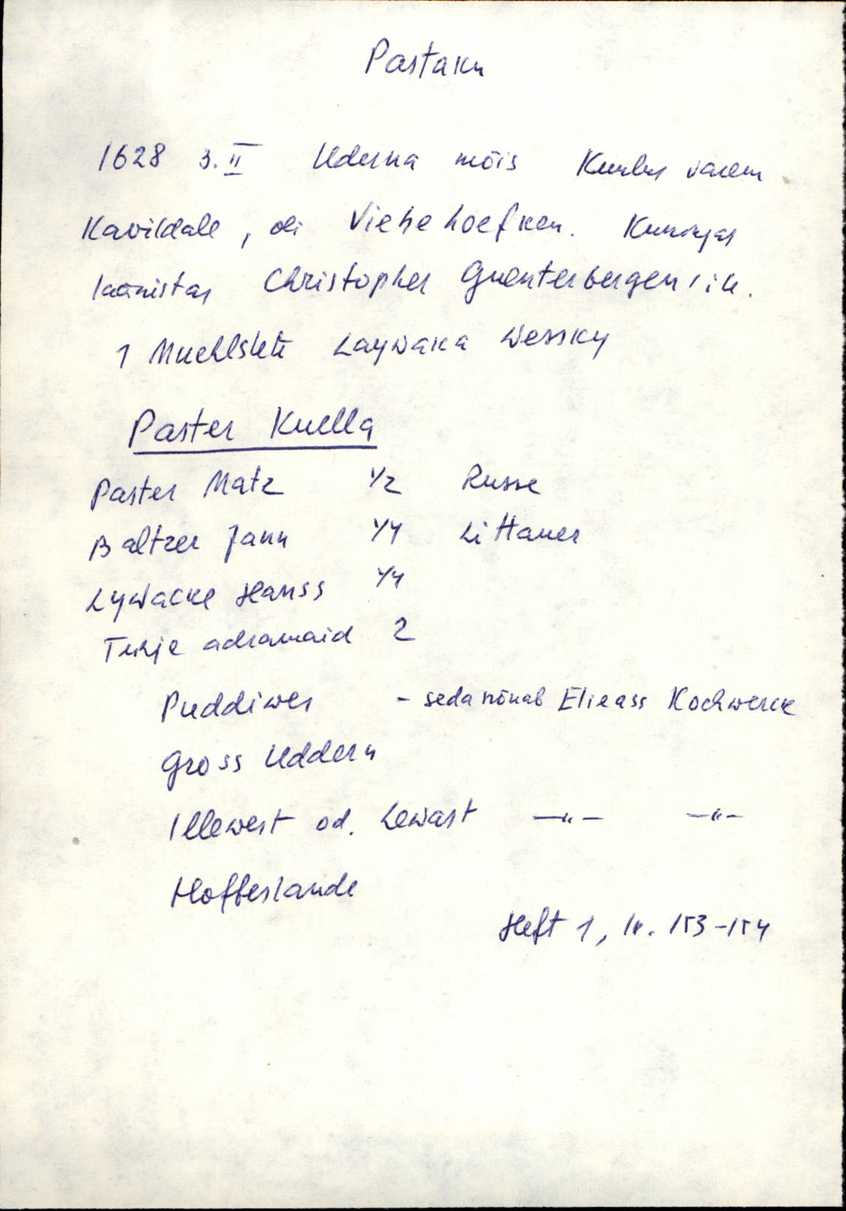 Pastaku
1628 3.II Uderna mõis Kuulus varem
Kavildale, oli Viehehoefken. Kuningas
läänistas Christopher Guenterbergen'ile.
1 Muehlstete Laywaka Wessky
Paster Kuella
Paster Matz 1/2 Russe
Baltzer Jann 1/4 Littauer
Lywacke Hanss 1/4
Tühje adramaid 2
Puddiwer - seda nõuab Elieass Kochwerck
Gross Uddern
Illewest od. Lewast -"- -"-
Hoffeslande
Heft 1, lk. 153-154